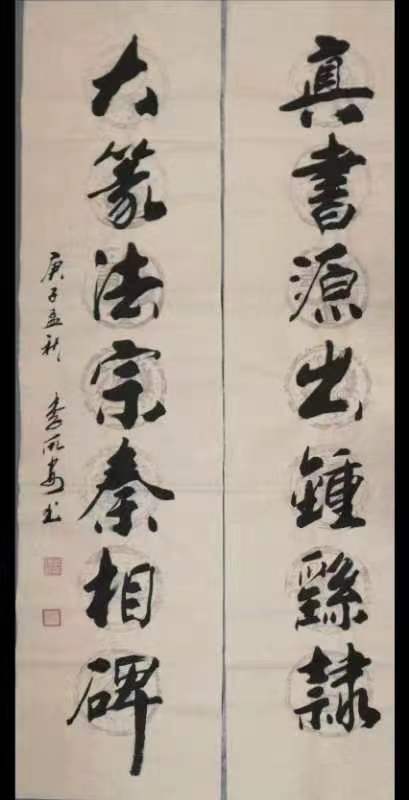 真書源出鍾繇隸
大篆法宗秦相碑
庚子孟秋 李